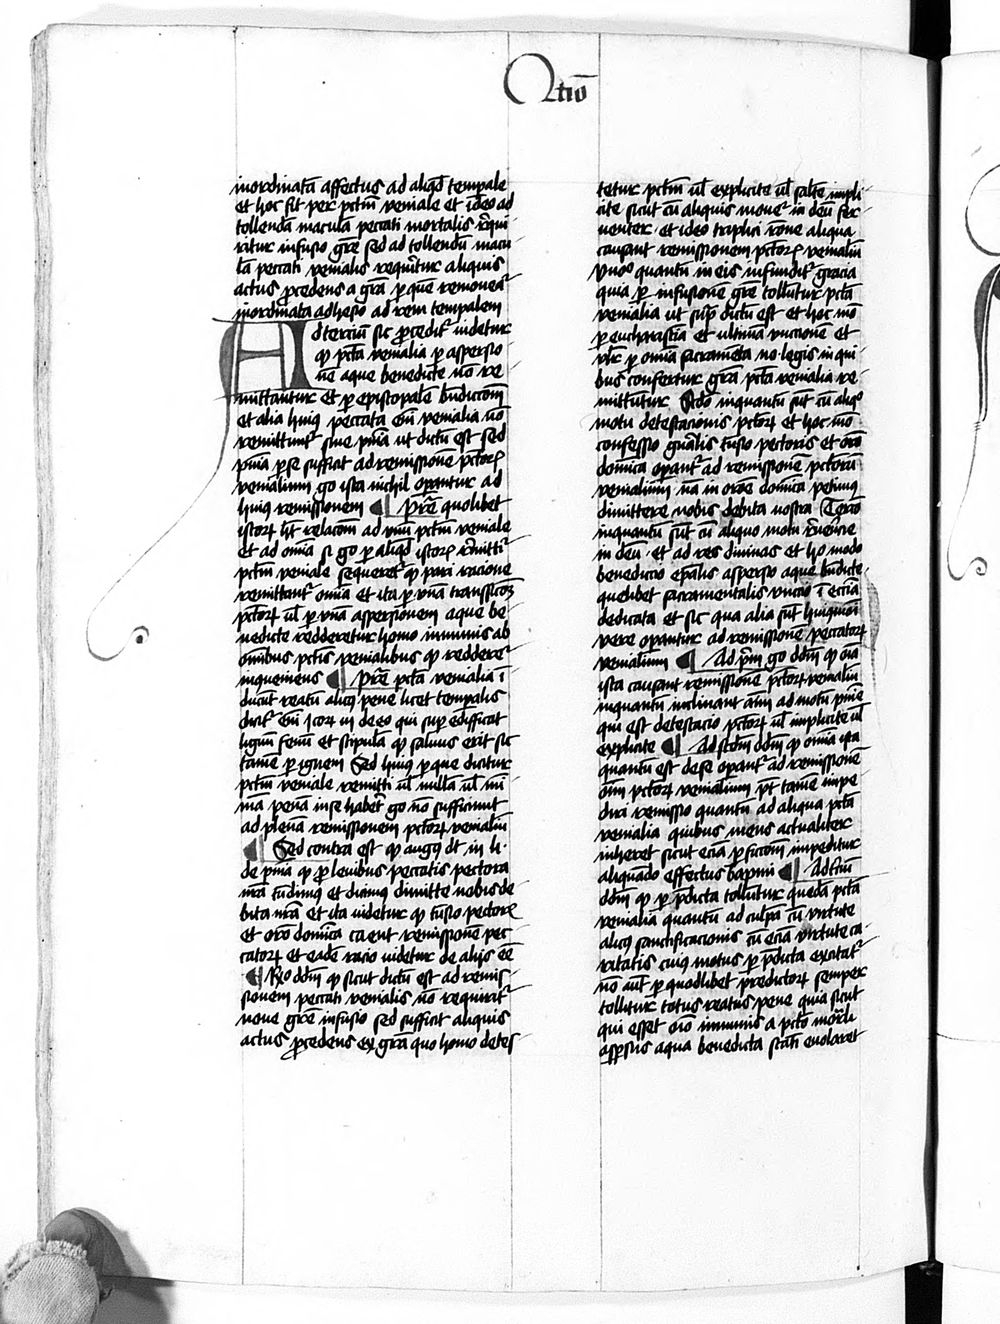 Qtiō
inordinatā affectus ad aliqd tempale
et hoc fit per pctm veniale et ideo ad
tollendā maculā peccati mortalis rqui
ritur infusio gre sed ad tollendū macu
lā peccati venialis requiritur aliquis
actus pcedens a grā p que removeat
inordinata adhesio ad rem tempalem
Ad tercium sic pcedit videtur
qp pctā venialia p aspersio
nē aque benedicte nō re
mittantur et p episcopalē bndictoem
et alia huius peccata em venialia nō
remittunt sine pnīa ut dictū est sed
pnīa p se sufficit ad remissionē pctorꝝ
venialium go ista nichil opantur ad
huius remissionem ¶ Prē quolibet
istorꝝ ht relacōem ad unū pctm veniale
et ad omīa si go p aliqd istorꝝ rmittit
pctm veniale sequeret qp pari racione
remittant omīa et ita p unā tunssiōem
pctorꝝ ul p unā aspersionem aque be
nedicte redderetur homo immunis ab
omībus pctis venialibus qp reddere
inqueniens ¶ Prē pctā venialia ī
ducūt reatū alicꝰ pene licet tempalis
dicit em j cor iij de eo qui sup edificat
lignū fenū et stipulā qp salvus erit sic
tamē p ignem Sed huius p que dicitur
pctm veniale remitti ul nullā ul mi
mā penā in se habet go nō sufficiunt
ad plenā remissionem pctorꝝ venialiū
¶ Sed contra est qp augus dt in li
de pnīa qp p leuibus peccatis pectora
nrā tūdimus et dicimus dimitte nobis de
bita nrā et ita videtur qp tūsio pectorꝝ
et oro domīca caent remissionē pec
catorꝝ et eadē racio videtur de alijs eē
¶ Rō ddm qp sicut dictū est ad remis
sionem peccati venialis nō requirit
noue gre infusio sed sufficit aliquis
actus pcedens ex gra quo homo detes
tetur pctm ul explicite ul saltē impli
cite sicut cū aliquis movet in deū fer
venter et ideo triplici rōne aliqua
causant remissionem pctorꝝ venialiū
vno quantū in eis infundit gracia
quia p infusionē gre tollūtur pctā
venialia ut sup dictū est et hoc mō
p eucharastia et ultimā vnccionē et
vlr p omīa sacramēta no legis in qui
bus confertur grā pctā venialia re
mittutur Scdo inquantū sūt cū aliqo
motu detestacionis pctorꝝ et hoc mō
confessio gnālis tusio pectoris et oro
domīca opant ad remissionē pctorū
venialium nā in orōe domīca petimus
dimittere nobis debita nostra Tercio
inquantū sūt cū aliquo motu revēncie
in deū et ad res divinas et ho modo
benedictio epalis aspersio aque bndicte
quelibet sacramentalis vnctio ī eccīa
dedicata et sic qua alia sūt huiqmōi
vere opantur ad remissionē peccatorꝝ
venialium ¶ Ad pm go ddm qp oīa
ista causant remissionē pctorꝝ venialiū
inquantū inclinant aīm ad motū pnīe
qui est detestacio pctorꝝ ul implicite ul
explicite ¶ Ad scdm ddm qp omīa ista
quantū est de se opant ad remissionē
om pctorꝝ venialium pt tamē impe
diri remissio quantū ad aliqua pctā
venialia quibus mens actualiter
inheret sicut ecīa p fictoem impeditur
aliquādo effectus bapmi ¶ Ad tciu
ddm qp p pdicta tollūtur quedā pctā
venialia quantū ad culpā cū virtute
alicꝰ sanctificacionis tū ecīa virtute ca
ritatis cuius motus p pdicta excitat
nō aut p quodlibet predictorꝝ semper
tollitur totus reatus pene quia sicut
qui esset oīo immunis a pctō mortli
aspsus aqua benedicta statī euolaret